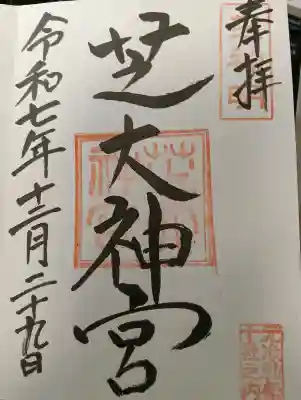 奉拝
芝大神宮
令和七年十二月二十九日